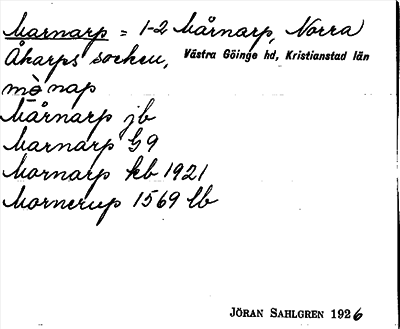 Marnarp = 1-2 Mårnarp, Norra
Åkarps socken, Västra Göinge hd, Kristianstad län
mò̱nap
Mårnarp jb
Marnarp G9
Mornarp kb 1921
Mornerup 1569 lb
JÖRAN SAHLGREN 1926